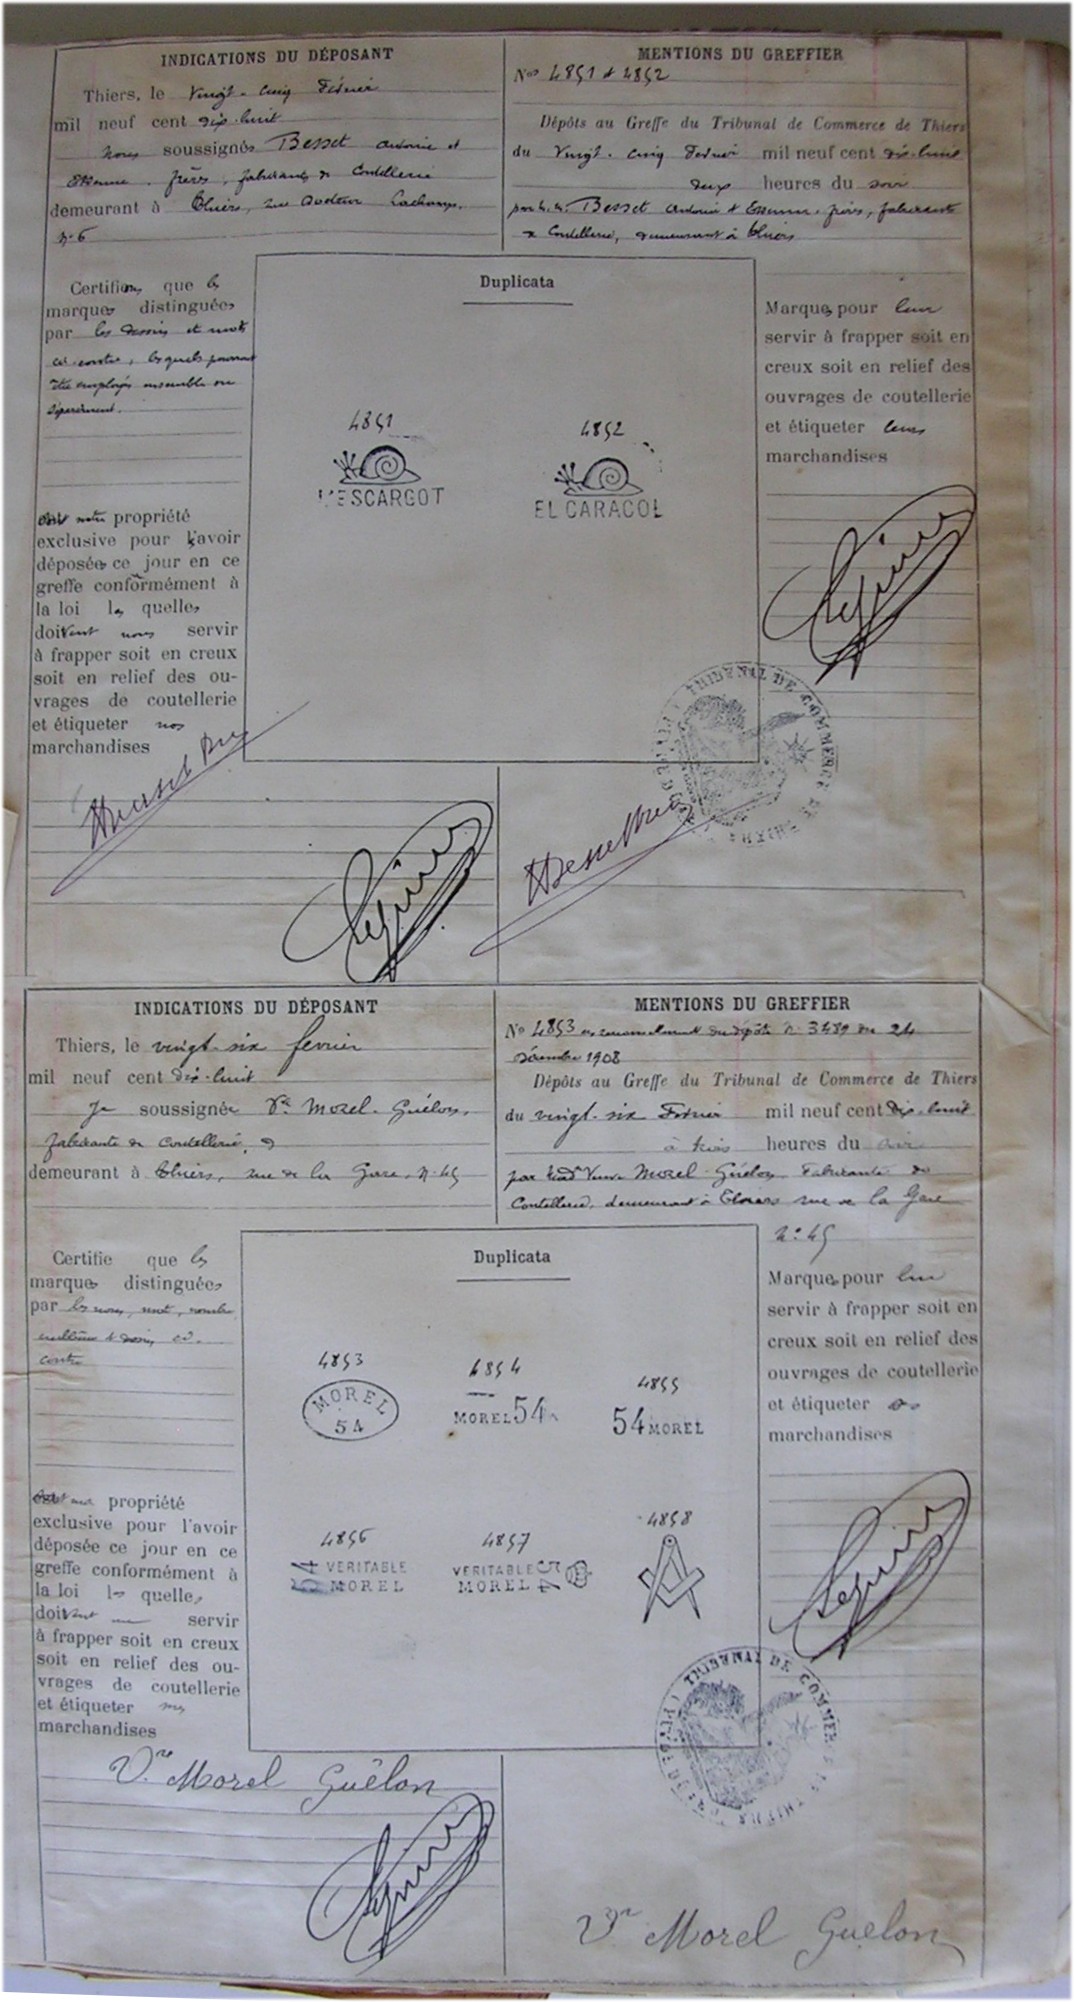 INDICATIONS DU DÉPOSANT
Thiers, le vingt-cinq Février
mil neuf cent dix-huit
Nous soussignés Besset Antoine et
Etienne, frères, fabricants de Coutellerie
demeurant à Thiers, rue Docteur Lachamp,
N° 6
MENTIONS DU GREFFIER
Nos 4851 & 4852
Dépôts au Greffe du Tribunal de Commerce de Thiers
du vingt-cinq Février mil neuf cent dix-huit
deux heures du soir
par M.M. Besset Antoine & Etienne, frères, fabricants
de Coutellerie, demeurant à Thiers
Certifions que les
marques distinguées
par les dessins et mots
ci-contre, lesquels pourront
être employés ensemble ou
séparément.
sont notre propriété
exclusive pour l'avoir
déposée ce jour en ce
greffe conformément à
la loi les quelles
doivent nous servir
à frapper soit en creux
soit en relief des ou-
vrages de coutellerie
et étiqueter nos
marchandises
Duplicata
4851
L'ESCARGOT
4852
EL CARACOL
Marques pour leur
servir à frapper soit en
creux soit en relief des
ouvrages de coutellerie
et étiqueter leurs
marchandises
TRIBUNAL DE COMMERCE DE THIERS
INDICATIONS DU DÉPOSANT
Thiers, le vingt-six février
mil neuf cent dix-huit
Je soussignée Vve Morel-Guélon,
fabricante de Coutellerie,
demeurant à Thiers, rue de la Gare, N° 45
MENTIONS DU GREFFIER
No 4853 en renouvellement du dépôt N° 3489 du 24
Décembre 1908
Dépôts au Greffe du Tribunal de Commerce de Thiers
du vingt-six Février mil neuf cent dix-huit
à trois heures du soir
par Made Veuve Morel-Guélon, Fabricante de
Coutellerie, demeurant à Thiers rue de la Gare
N° 45
Certifie que les
marques distinguées
par les noms, mot, nombre
emblème & dessin ci-
contre
sont ma propriété
exclusive pour l'avoir
déposée ce jour en ce
greffe conformément à
la loi les quelles
doivent me servir
à frapper soit en creux
soit en relief des ou-
vrages de coutellerie
et étiqueter mes
marchandises
Duplicata
4853
MOREL
54
4854
MOREL 54
4855
54 MOREL
4856
54 VERITABLE
MOREL
4857
VERITABLE
MOREL 54
4858
Marques pour lui
servir à frapper soit en
creux soit en relief des
ouvrages de coutellerie
et étiqueter ses
marchandises
TRIBUNAL DE COMMERCE DE THIERS
Vve Morel Guélon
Vve Morel Guelon